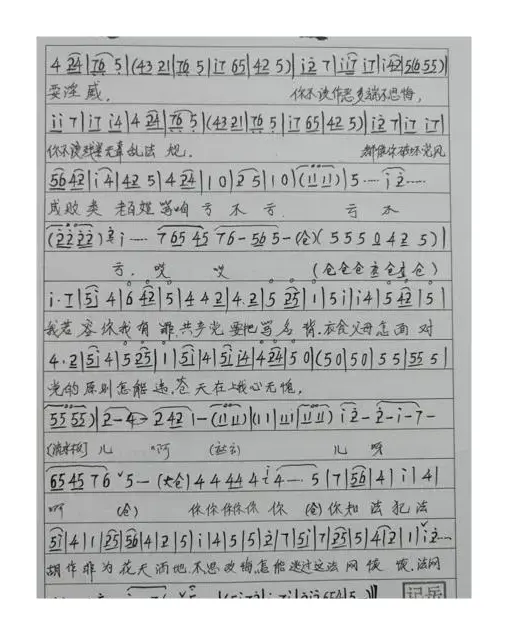 4 24|76 5|(43 21|76 5|i7 65|42 5)|i2 7|ii7 i7|i42|5655)|
耍淫威， 你不该作恶多端不思悔，
ii 7|i7 i4|4 24|76 5|(43 21|76 5|i7 65|42 5)|i2 7|i7 i7|
你不该残害无辜乱法规， 都像你破坏党风
56 42|i 4|42 5|4 24|1 0|2 5|1 0|(11 11)|5····i 2····
成败类 老百姓骂咱亏不亏， 亏不
(22 22) 2 i···· 7 65 45 76-56 5-(仓)(5 5 5 0 4 2 5)|
亏，哎 哎 (仓仓仓 仓 仓)
i·7|5i 4|6 42|5|4 4 2|4·2|5 25|1|5 i|i 4|5 42|5|
我若容你我有罪，共产党要把骂名背，衣食父母怎面对
4·2|5i 4|5 25|1|5i 4|5i i4|4 24|5 0|(5 0|5 0|5 5|55 5|
党的原则怎能违，苍天在上我心无愧，
55 55)|2-4-2 42|1-(11 11)|(11|111|11 11) i 2-2-i-7-
(流水板)儿 啊 儿 呀
65 45 7 6 ˇ5-(大仓)4 4 4 4 4 i 4····5|7|56|4|i|4|
啊 (仓) 你你你你你 你 (仓)你知法犯法
5i|4|1|25|56|4|2|5|i|4|5|5|2|7|5i|7|25|5|4|2|1|i2····
胡作非为花天酒地，不思改悔怎能逃过这法网恢恢，法网